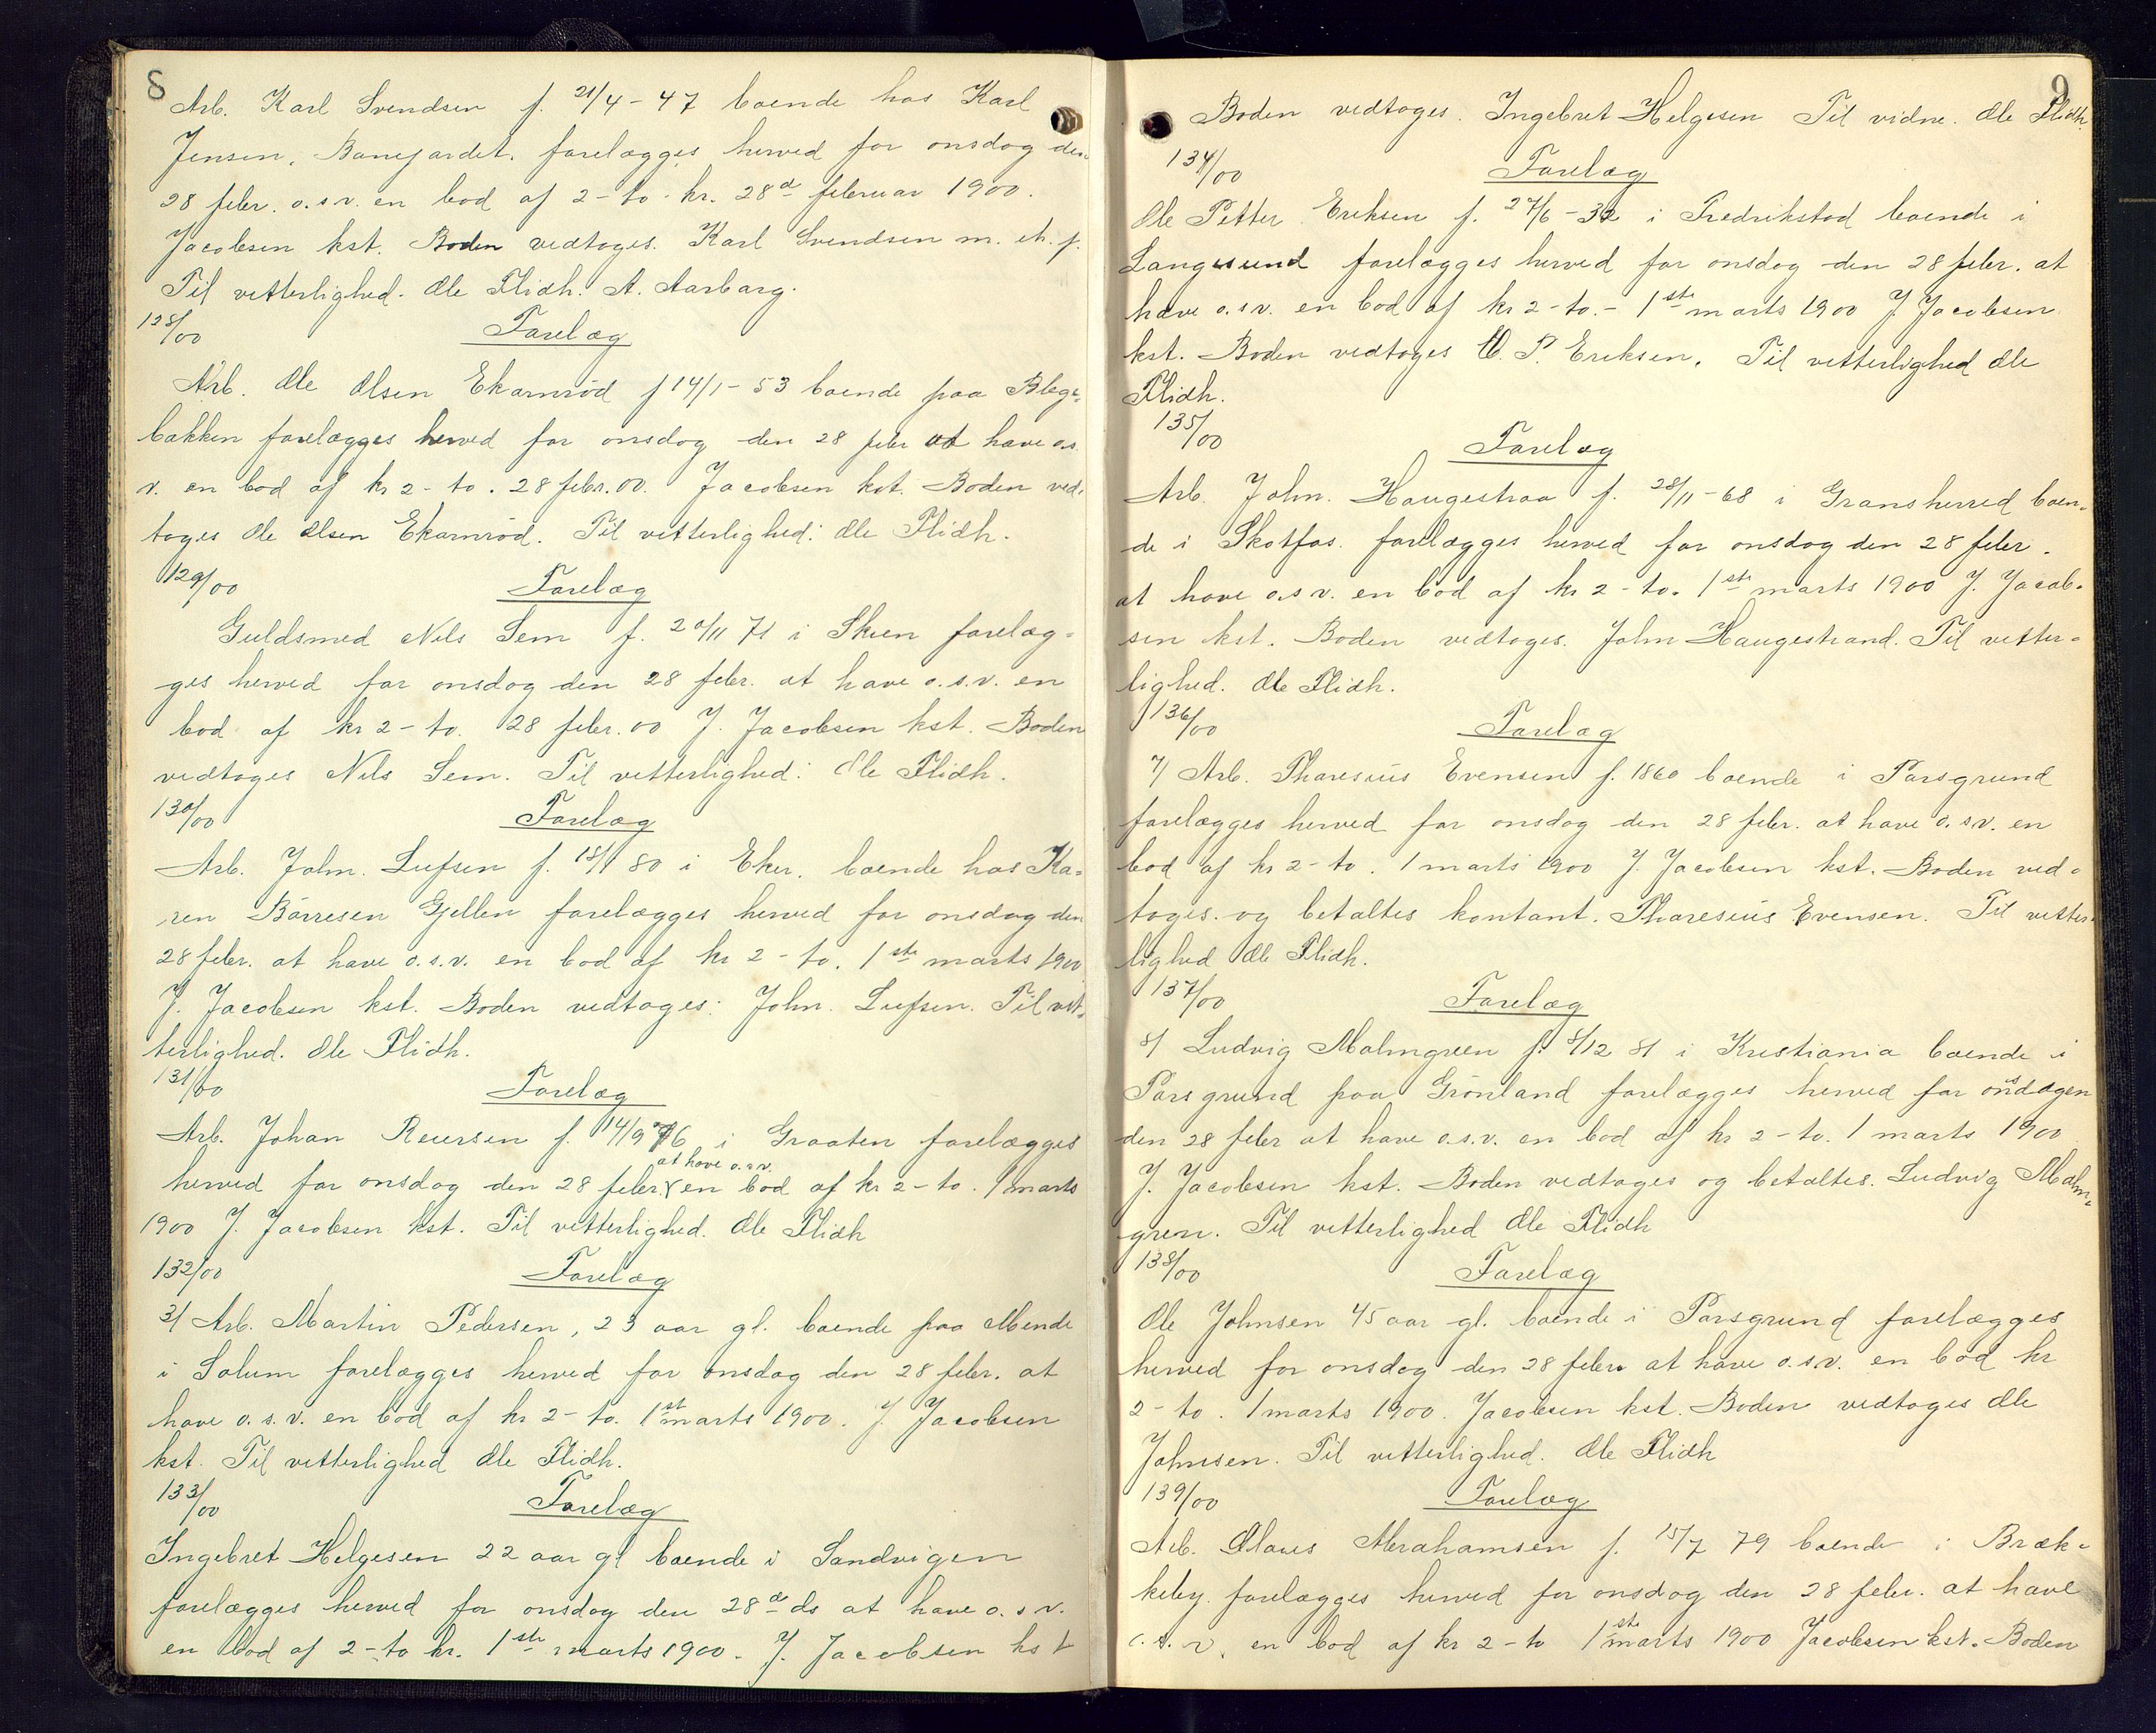 8
Arb. Karl Svendsen f. 21/4 - 47 boende hos Karl
Jensen, Banejordet, forelægges herved for onsdag den
28 febr. o.s.v. en bod af 2 - to - kr. 28d februar 1900.
Jacobsen kst. Boden vedtages. Karl Svendsen m. ih. p.
Til vitterlighed. Ole Flidh. A. Aarborg.
128/00 Forelæg
Arb. Ole Olsen Ekornrød f 14/1 - 53 boende paa Blege-
bakken forelægges herved for onsdag den 28 febr at have o.s
v. en bod af kr 2 - to. 28 febr. 00. Jacobsen kst. Boden ved-
tages Ole Olsen Ekornrød. Til vitterlighed: Ole Flidh.
129/00 Forelæg
Guldsmed Nils Sem f. 20/11 71 i Skien forelæg-
ges herved for onsdag den 28 febr. at have o.s.v. en
bod af kr 2 - to. 28 febr. 00 J. Jacobsen kst. Boden
vedtages Nils Sem. Til vitterlighed: Ole Flidh.
130/00 Forelæg
Arb. John. Lufsen f. 18/1 80 i Eker. boende hos Ka-
ren Børresen Gjellen forelægges herved for onsdag den
28 febr. at have o.s.v. en bod af kr 2 - to. 1ste marts 1900
J. Jacobsen kst. Boden vedtages: John. Lufsen. Til vit-
terlighed. Ole Flidh.
131/00 Forelæg
Arb. Johan Reiersen f. 14/9 76 i Graaten forelægges
herved for onsdag den 28 febr. at have o.s.v. en bod af kr 2 - to. 1 marts
1900 J. Jacobsen kst. Til vitterlighed. Ole Flidh
132/00 Forelæg
3/ Arb. Martin Pedersen, 23 aar gl. boende paa Mende
i Solum forelægges herved for onsdag den 28 febr. at
have o.s.v. en bod af kr 2 - to. 1st marts 1900. J. Jacobsen
kst. Til vitterlighed Ole Flidh.
133/00 Forelæg
Ingebret Helgesen 22 aar gl boende i Sandvigen
forelægges herved for onsdag den 28de ds at have o.s.v.
en bod af 2 - to kr. 1ste marts 1900. J. Jacobsen kst
9
Boden vedtages. Ingebret Helgesen Til vidne. Ole Flidh.
134/00 Forelæg
Ole Petter Eriksen f. 27/6 - 32 i Fredrikstad boende i
Langesund forelægges herved for onsdag den 28 febr. at
have o.s.v. en bod af kr 2 - to. - 1ste marts 1900 J. Jacobsen
kst. Boden vedtages O. P. Eriksen. Til vitterlighed Ole
Flidh.
135/00 Forelæg
Arb. John. Haugestraa f. 28/11 - 68 i Gransherred boen-
de i Skotfos. forelægges herved for onsdag den 28 febr.
at have o.s.v. en bod af kr 2 - to. 1ste marts 1900 J. Jacob-
sen kst. Boden vedtages. John Haugestrand. Til vitter-
lighed. Ole Flidh.
136/00 Forelæg
7/ Arb. Tharesius Evensen f. 1860 boende i Porsgrund
forelægges herved for onsdag den 28 febr. at have o.s.v. en
bod af kr 2 - to. 1 marts 1900 J. Jacobsen kst. Boden ved-
tages. og betaltes kontant. Tharesius Evensen. Til vitter-
lighed Ole Flidh.
137/00 Forelæg
8/ Ludvig Malmgreen f. 8/12 81 i Kristiania boende i
Porsgrund paa Grønland forelægges herved for onsdagen
den 28 febr at have o.s.v. en bod af kr 2 - to. 1 marts 1900
J. Jacobsen kst. Boden vedtages og betaltes. Ludvig Malm-
gren. Til vitterlighed Ole Flidh
138/00 Forelæg
Ole Johnsen 45 aar gl. boende i Porsgrund forelægges
herved for onsdag den 28 febr. at have o.s.v. en bod kr
2 - to. 1 marts 1900. Jacobsen kst. Boden vedtages Ole
Johnsen. Til vitterlighed. Ole Flidh
139/00 Forelæg
Arb. Olaus Abrahamsen f. 15/7 79 boende i Bræk-
keby. forelægges herved for onsdag den 28 febr. at have
o.s.v. en bod af kr 2 - to 1ste marts 1900 Jacobsen kst. Boden